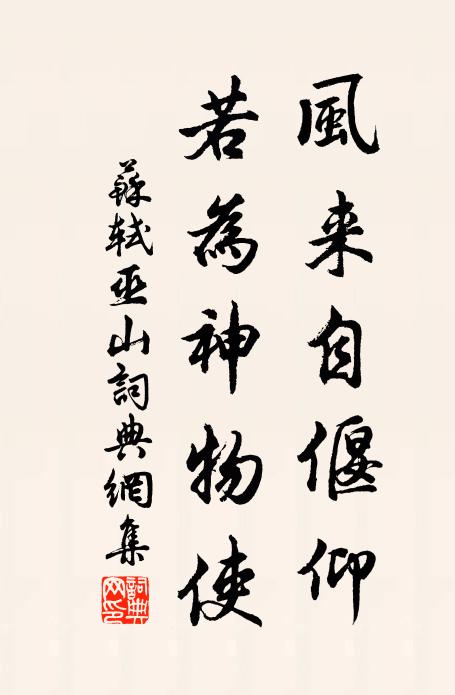 風来自偃仰
若為神物使
蘇軾巫山詞典網集
詞典網印